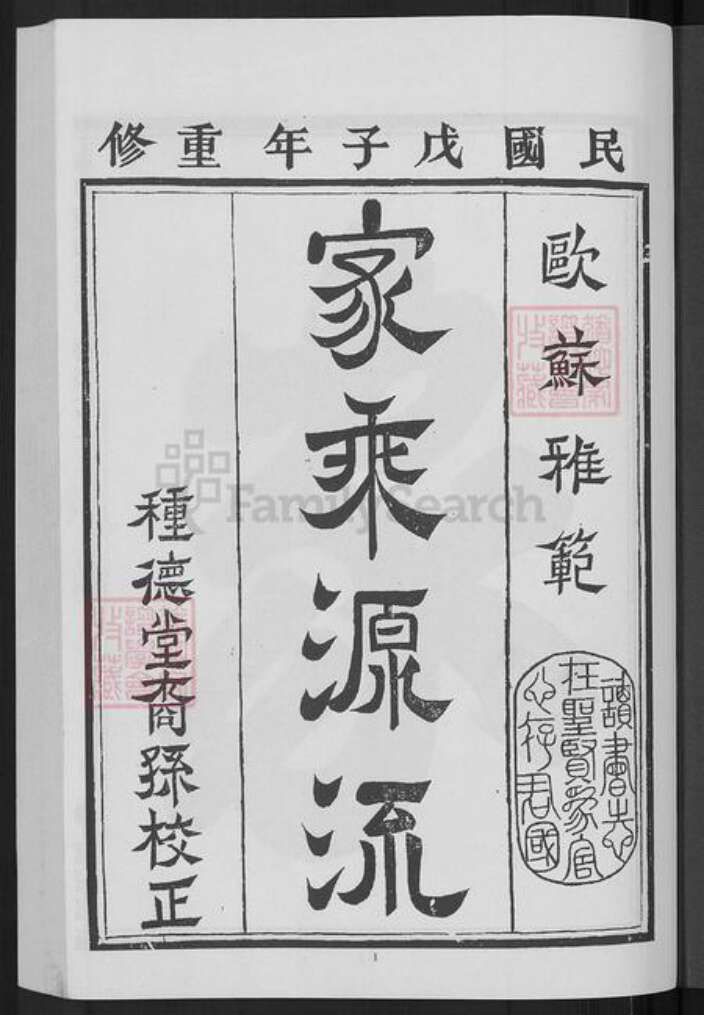 民國戊子年重修
歐蘇雅範
讀書志
在聖賢為官
心存君國
家乘源流
種德堂裔孫校正
FamilySearch
1